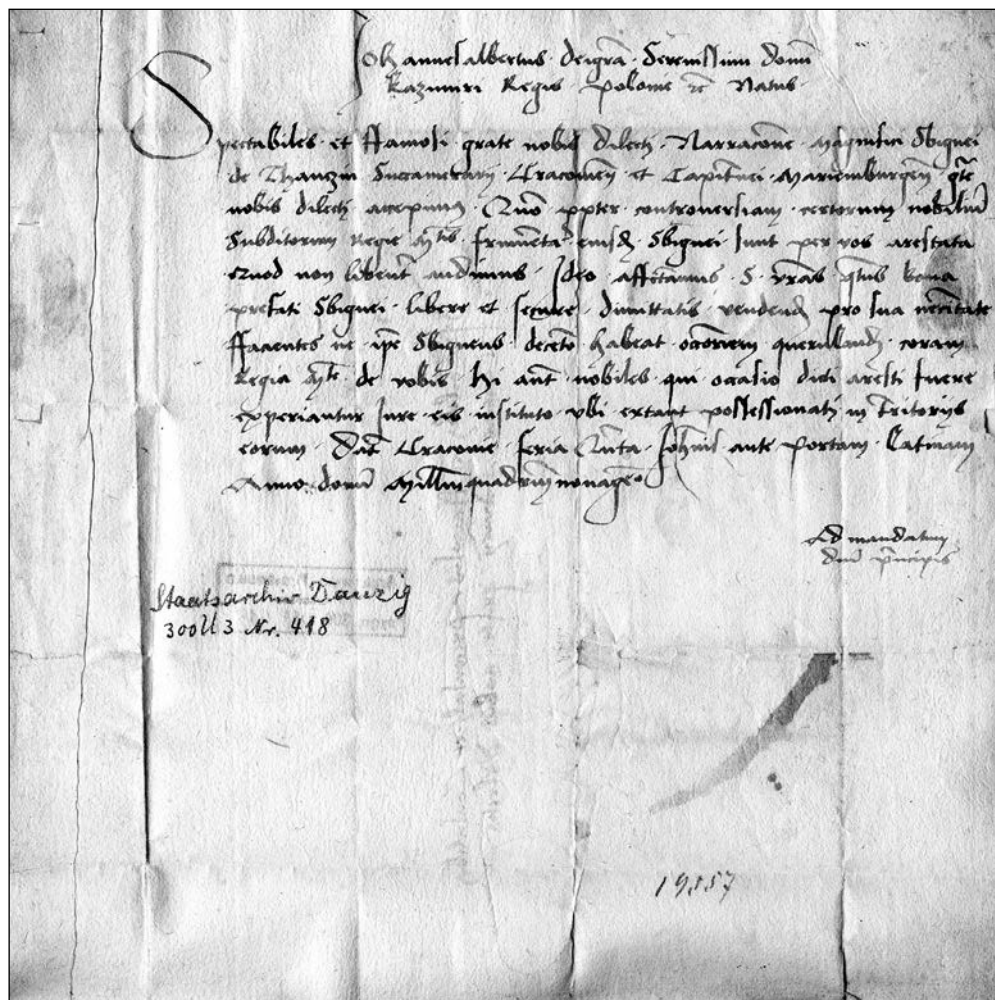 Johannesalbertus deigr̄a Serenissimi domī
Kazimiri Regis polonie ꝛc̄ Natus
Spectabiles et ffamosi grate nobis dilecti Narracōne magnifici Sbignei
de Thanczin Succamerarij Cracouien̄ et Capitanei Mariemburgen̄ gr̄te
nobis dilecti accepimus Quō ꝓpter controuersiam certorum nobiliū
Subditorum Regie m̄tis frumēta eiusdē Sbignei sunt per vos arestata
Quod non libent̄ audimus Ideo affectamus S vr̄as qt̄nus bona
prefati Sbignei libere et secure dimittatis vendend pro sua nēcitate
ffacientes ne ip̄e Sbigneus decet̄o habeat occōnem querulland coram
Regia m̄te de vobis Hi aūt nobiles qui occasio dicti aresti fuere
experiantur Jure eis instituto vbi extant possessionati in t̄ritorijs
eorum Dat̄ Cracouie feria Qūta Joh̄nis ante portam Latinam
Anno domī Mill̄mquadrīmnonageō
Ad mandatum
dn̄i p̄ncipis
Staatsarchiv Danzig
300 U 3 Nr. 418
19557